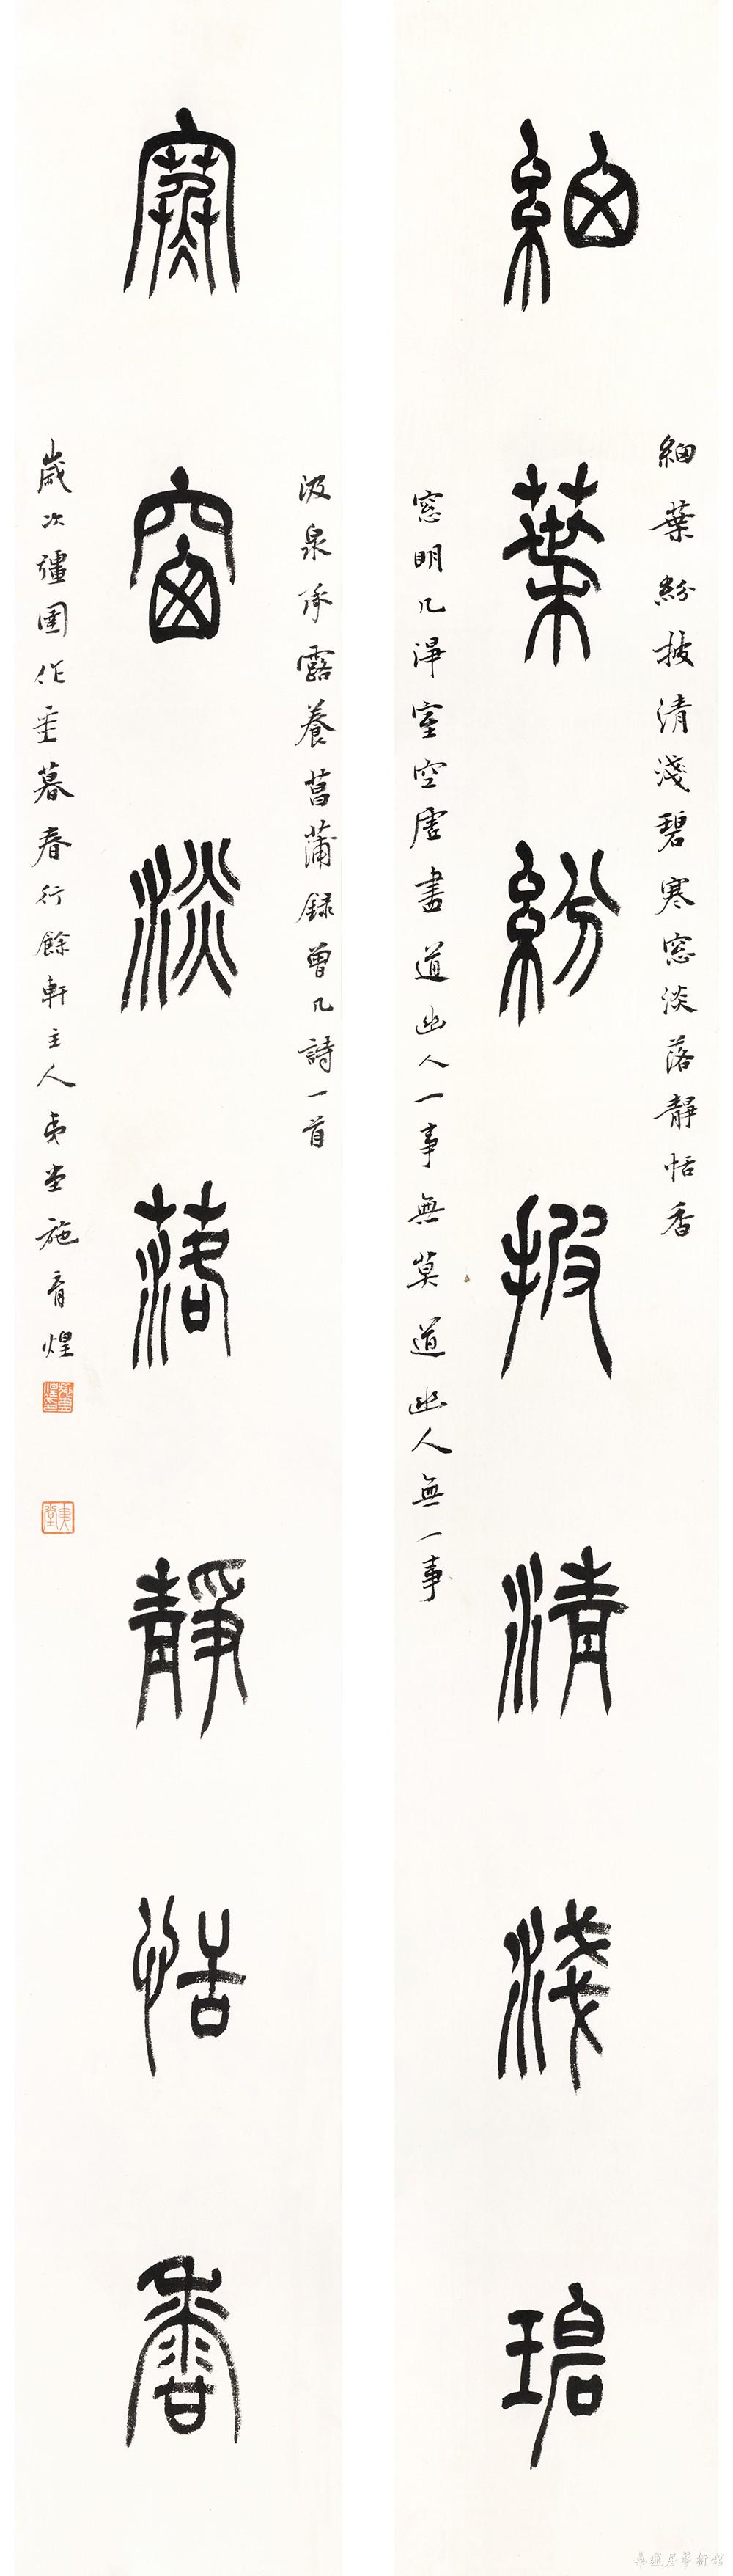 細葉紛披清淺碧寒窓淡落靜恬香
細葉紛披清淺碧
窓明几淨室空虛盡道幽人一事無莫道幽人無一事
汲泉承露養菖蒲録曾几詩一首
寒窗淡落靜恬香
歲次彊圉作噩暮春行餘軒主人夷堂施育煌
夷堂
桑蓮居藝術館